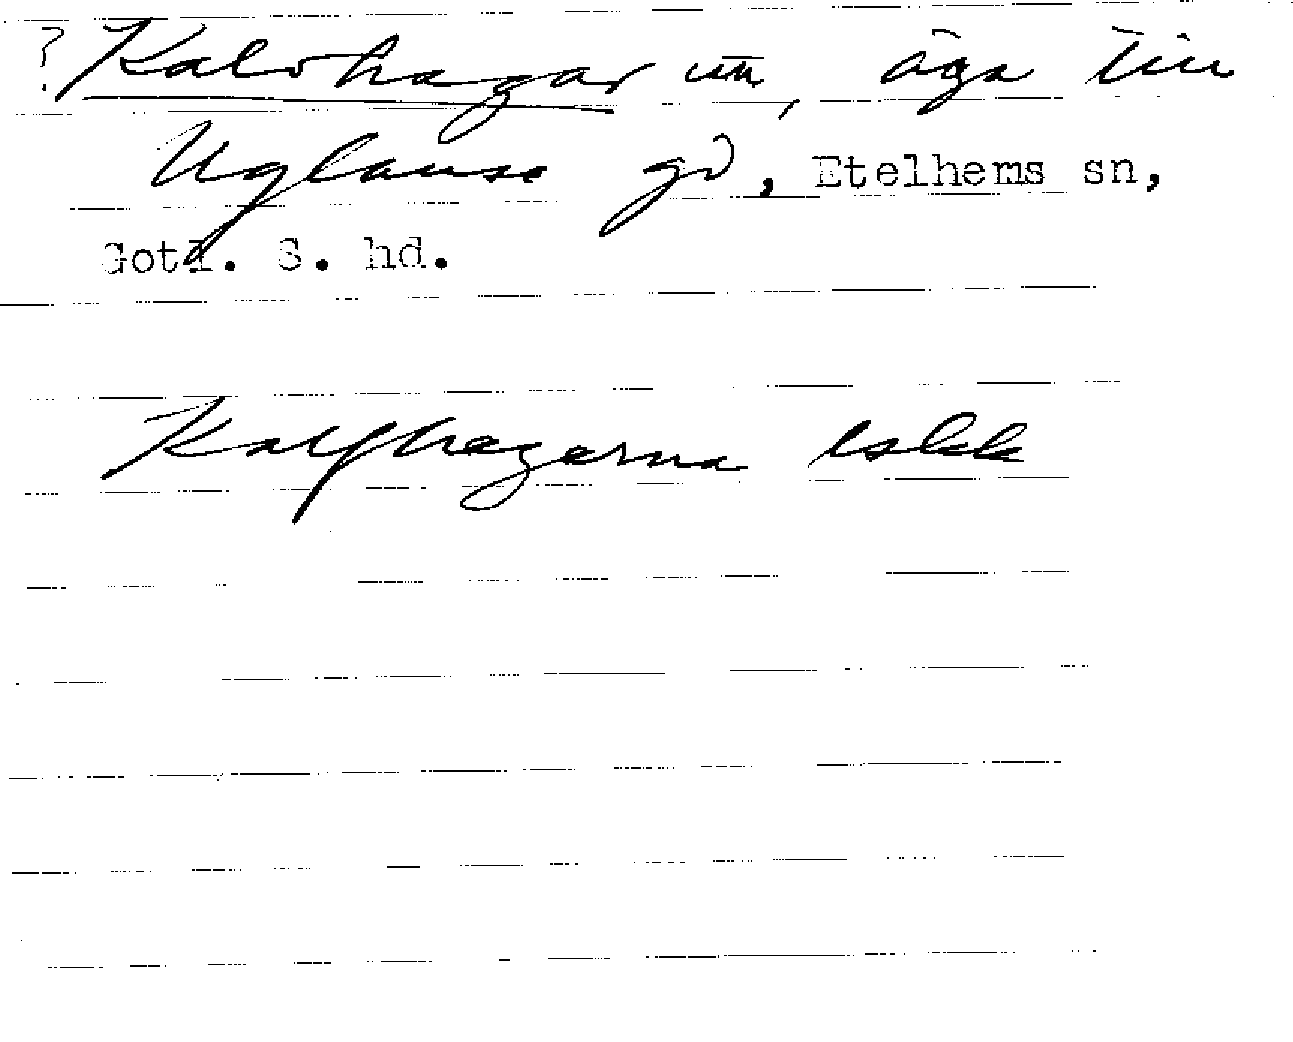 ? Kalvhagar äga till
Uglause gd, Etelhems sn,
Gotl. S. hd.
Kalfhagarna